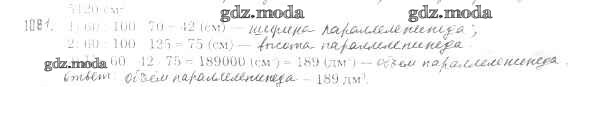 5120 см³
gdz.mom gdz.mom
1081. 1) 60 : 100 · 70 = 42 (см) — ширина параллелепипеда;
2) 60 : 100 · 125 = 75 (см) — высота параллелепипеда
gdz.mom 60 · 42 · 75 = 189000 (см³) = 189 (дм³) — объем параллелепипеда.
Ответ: объем параллелепипеда — 189 дм³.
gdz.mom